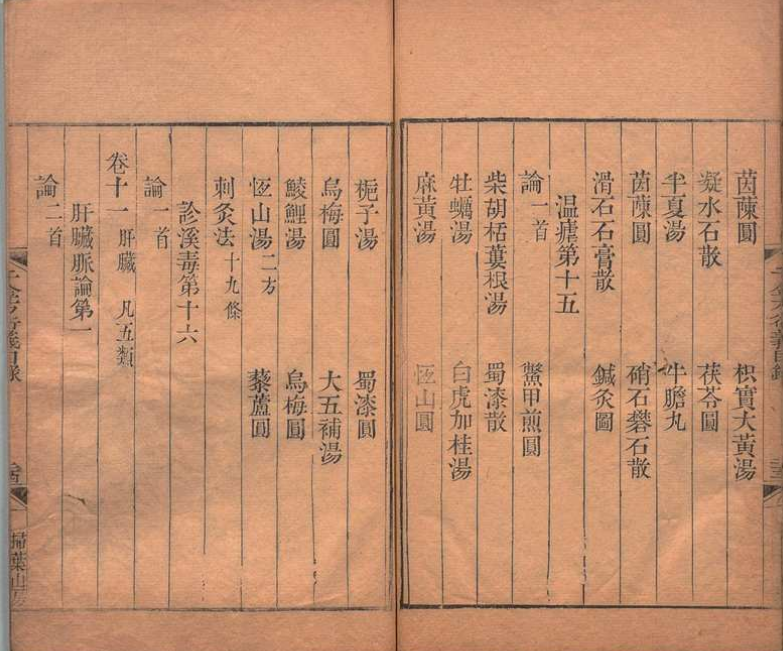 茵蔯圓 枳實大黃湯
凝水石散 茯苓圓
半夏湯 牛膽丸
茵蔯圓 硝石礬石散
滑石石膏散 鍼灸圖
温瘧第十五
論一首 鱉甲煎圓
柴胡栝蔞根湯 蜀漆散
牡蠣湯 白虎加桂湯
麻黃湯 恆山圓
梔子湯 蜀漆圓
烏梅圓 大五補湯
鯪鯉湯 烏梅圓
恆山湯二方 藜蘆圓
刺灸法十九條
診溪毒第十六
論一首
卷十一 肝臟 凡五類
肝臟脈論第一
論二首
掃葉山房